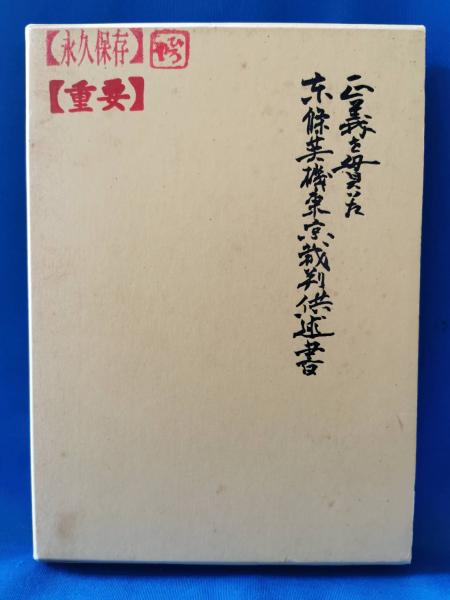 正義を貫いた
東條英機東京裁判供述書
【永久保存】
【重要】